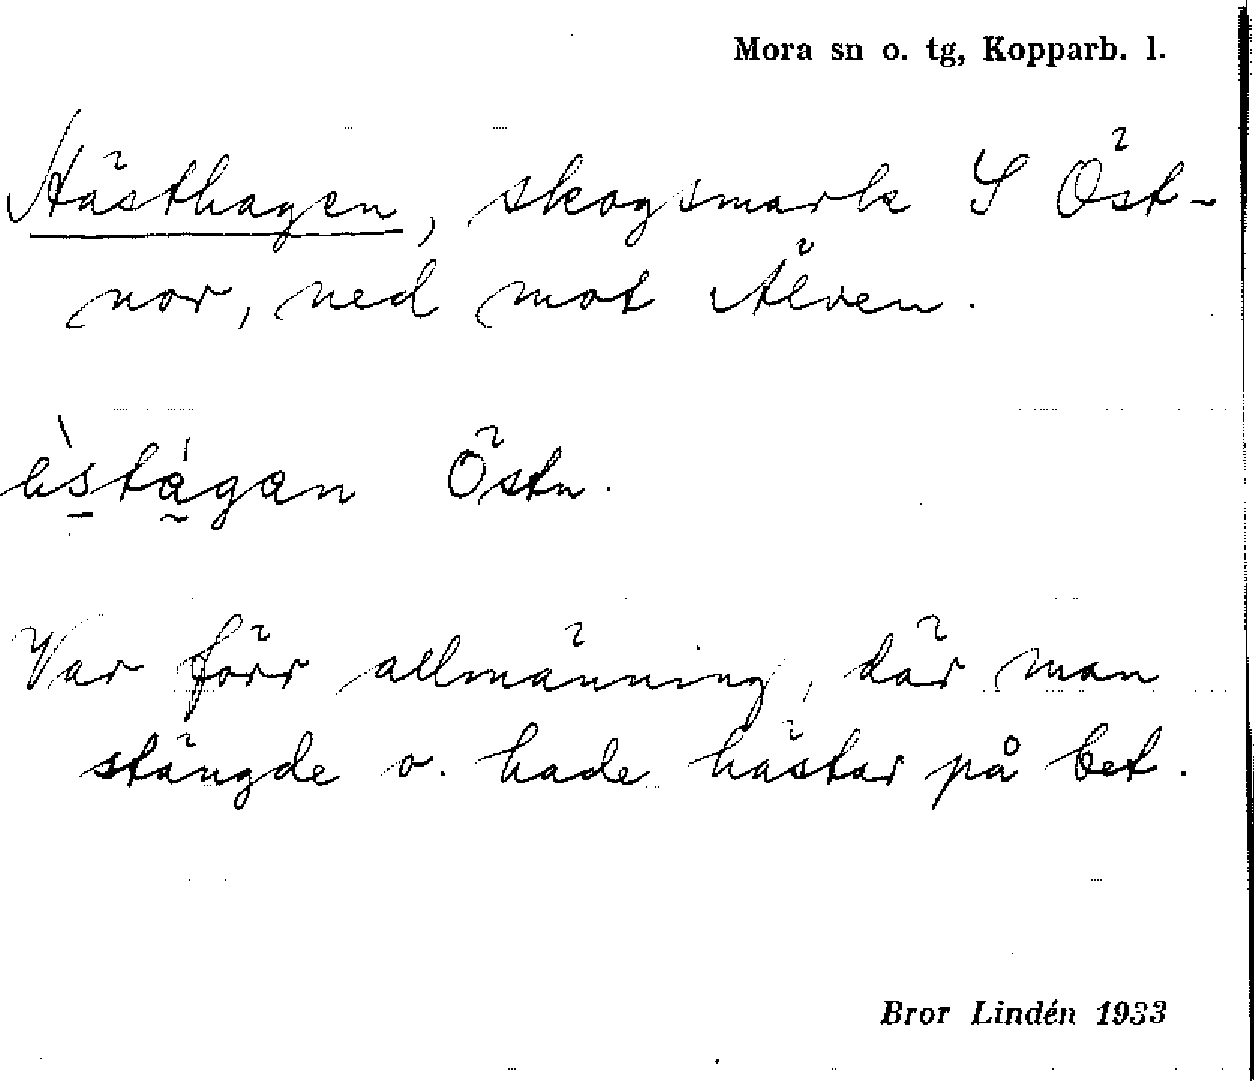 Mora sn o. tg, Kopparb. l.
Hästhagen, skogsmark S Öst-
nor, ned mot Älven.
Östn.
Var förr allmänning, där man
stängde o. hade hästar på bet.
Bror Lindén 1933